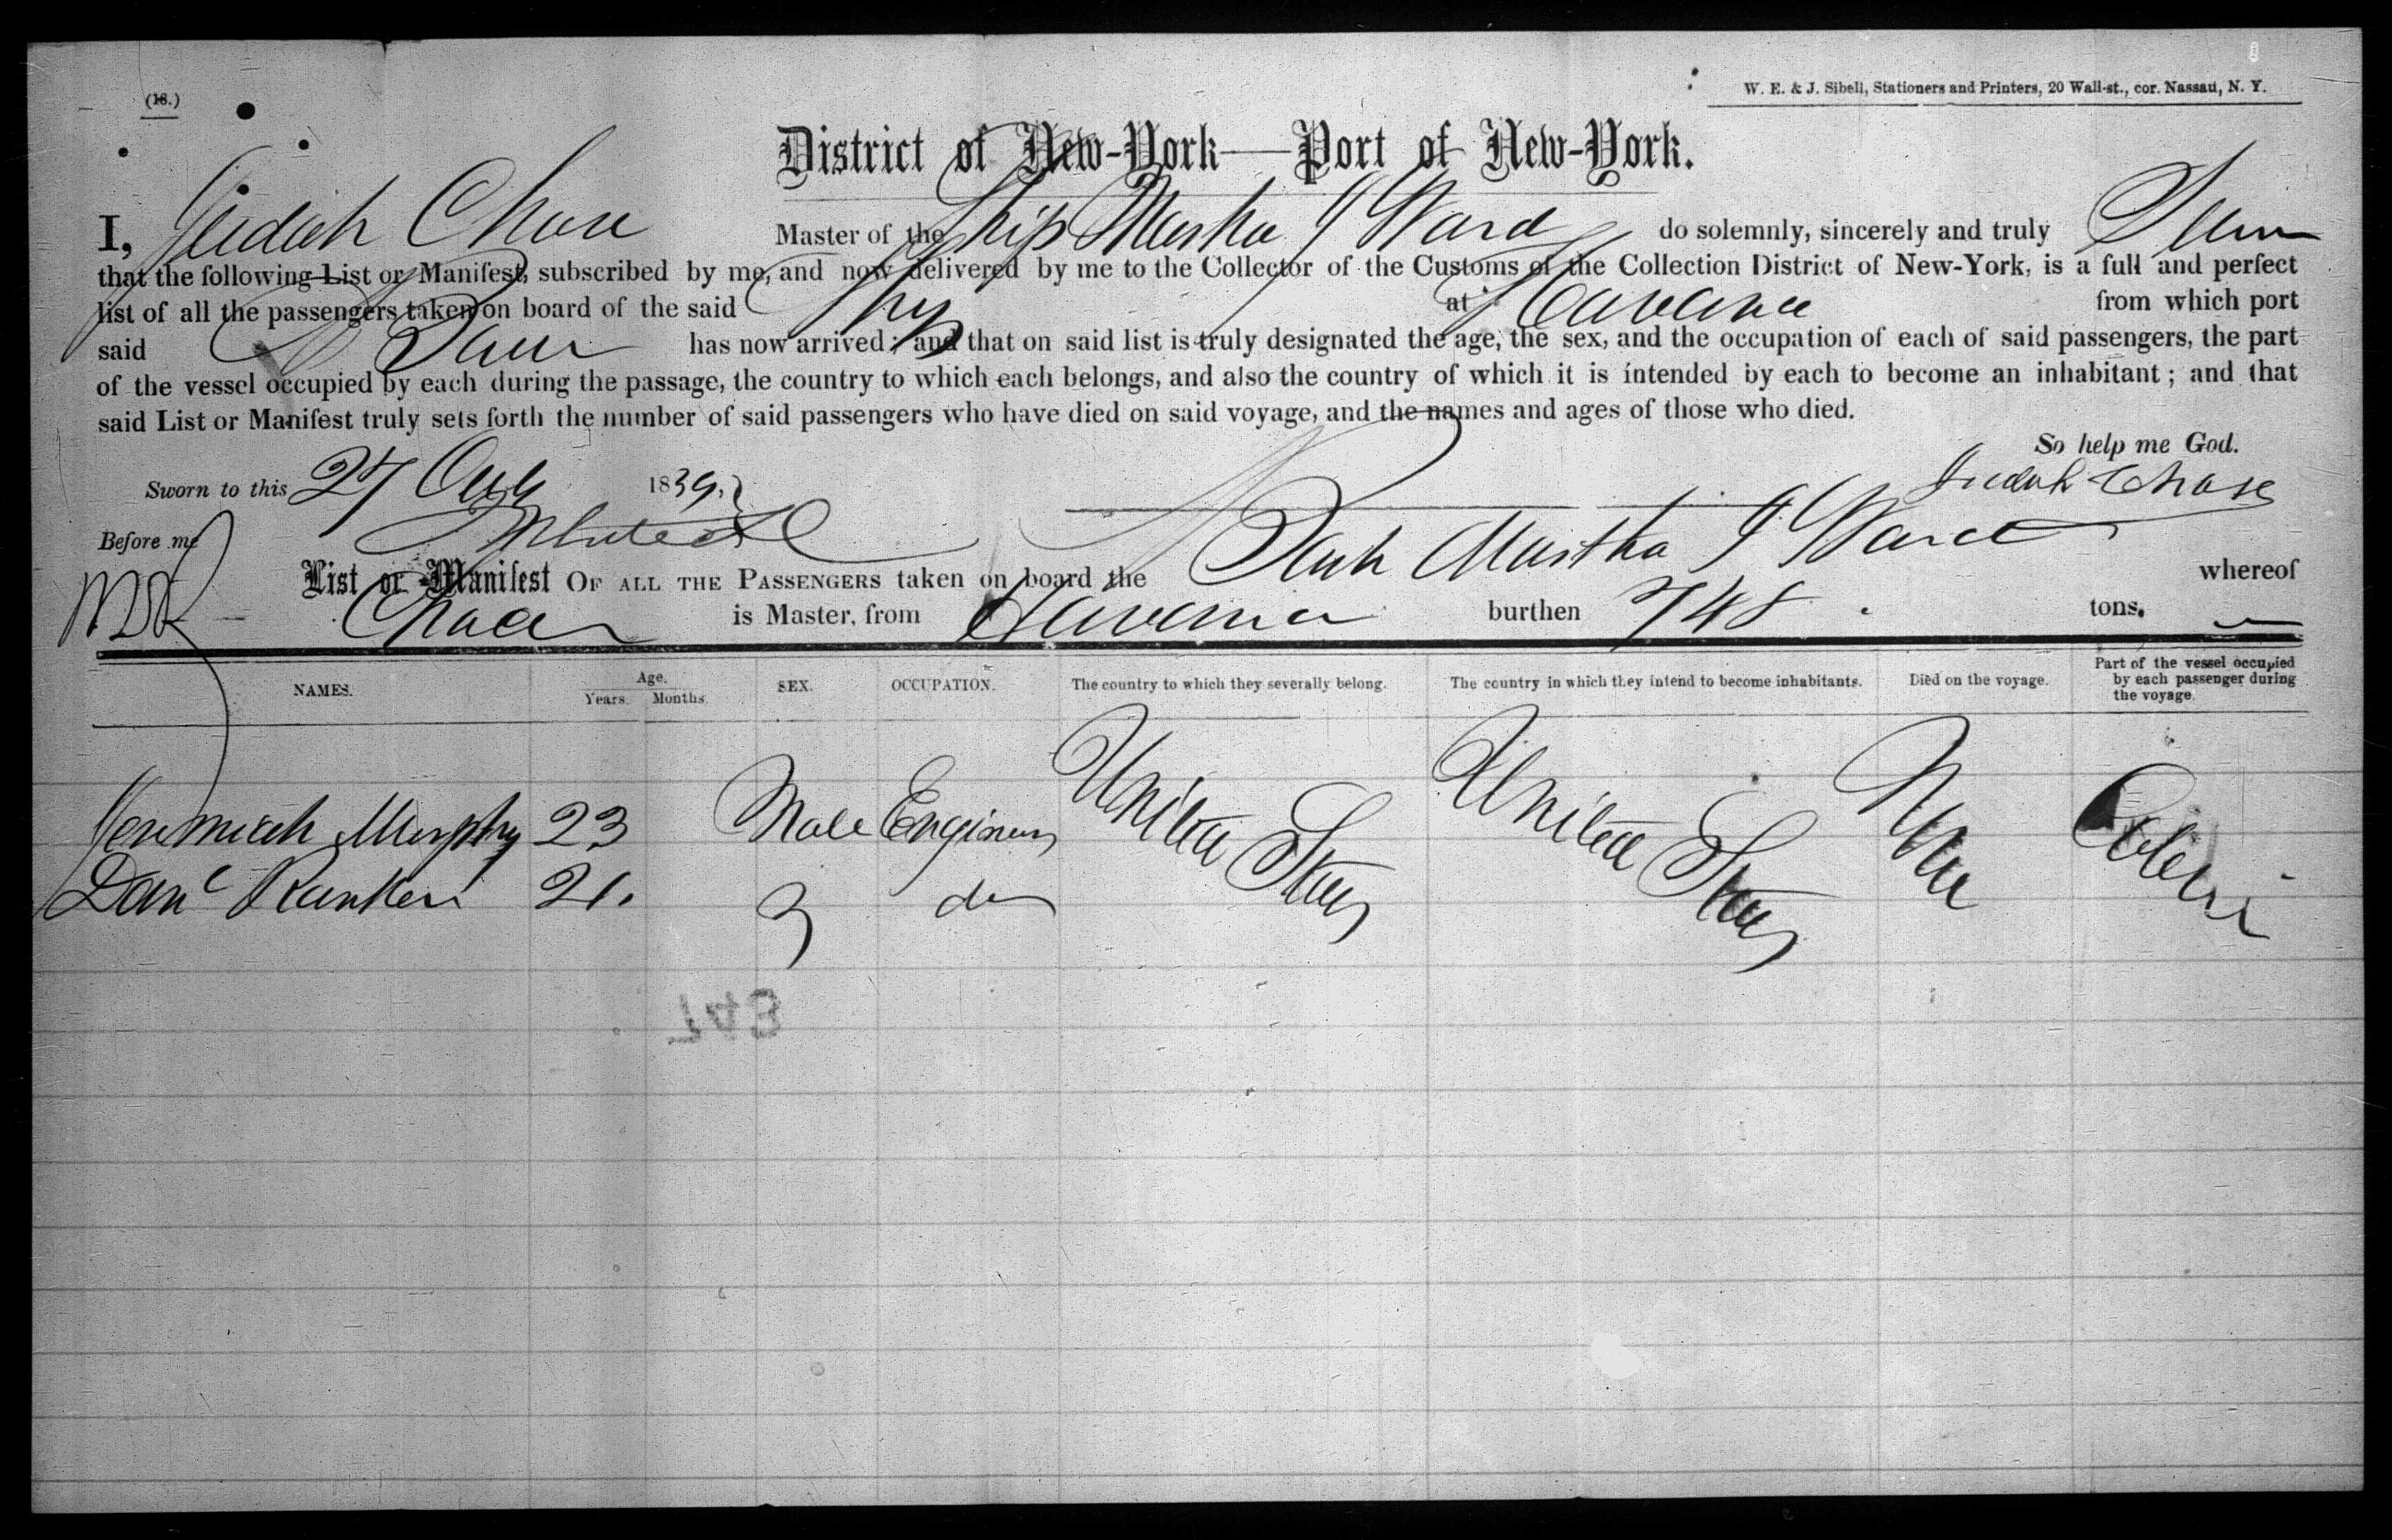 (18.)
W. E. & J. Sibell, Stationers and Printers, 20 Wall-st., cor. Nassau, N. Y.
District of New-York—Port of New-York.
I, Judah Chase Master of the Ship Martha J Ward do solemnly, sincerely and truly Swear
that the following List or Manifest, subscribed by me, and now delivered by me to the Collector of the Customs of the Collection District of New-York, is a full and perfect
list of all the passengers taken on board of the said Ship at Havana from which port
said has now arrived; and that on said list is truly designated the age, the sex, and the occupation of each of said passengers, the part
of the vessel occupied by each during the passage, the country to which each belongs, and also the country of which it is intended by each to become an inhabitant; and that
said List or Manifest truly sets forth the number of said passengers who have died on said voyage, and the names and ages of those who died.
So help me God.
Sworn to this 27 Aug 1839
Judah Chase
Before me
List or Manifest OF ALL THE PASSENGERS taken on board the Martha J Ward whereof
Chase is Master, from Havana burthen 748 tons.
NAMES. Age. Years. Months. SEX. OCCUPATION. The country to which they severally belong. The country in which they intend to become inhabitants. Died on the voyage. Part of the vessel occupied by each passenger during the voyage
Jeremiah Murphy 23 Male Engineer United States United States None Cabin
Danl Ranken 21. do
748